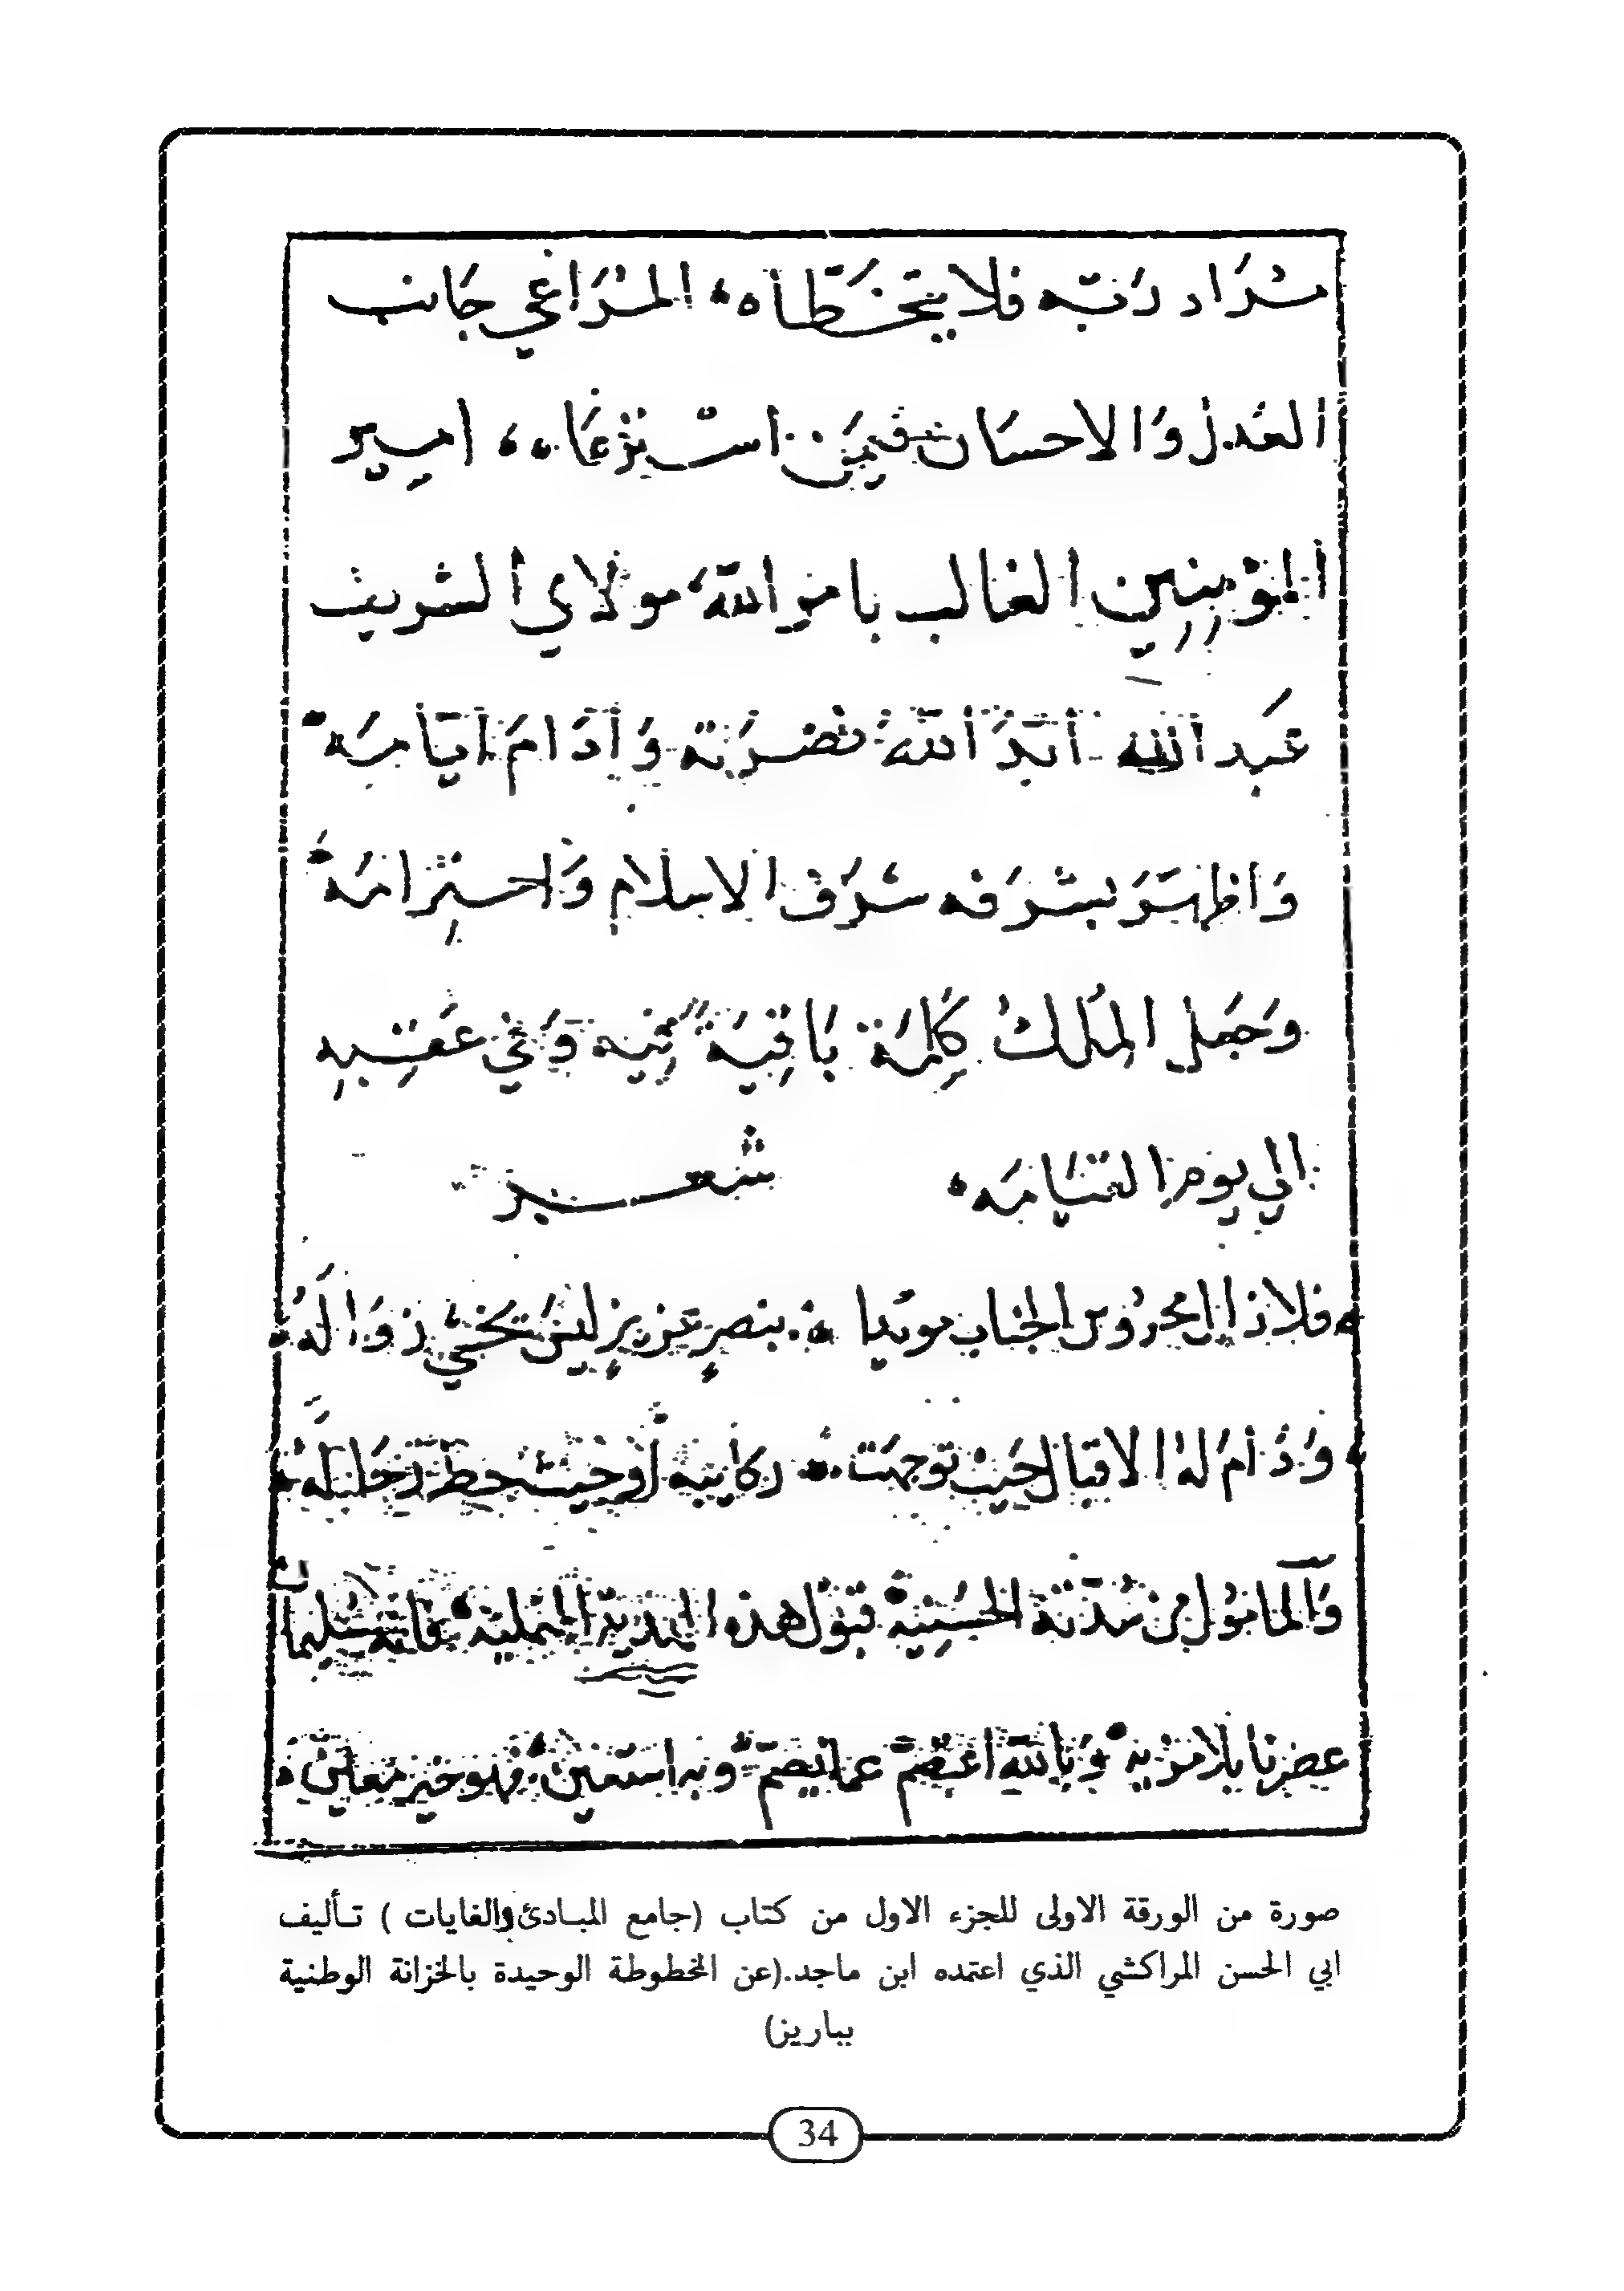 مُرَاد رَبّه فلا يتَخَطَّاه، المُرَاعي جَانب
العَدل وَالاحسَان فيمَن استرْعَاه، امير
المؤمنِين الغالب بامر الله، مولاي الشريف
عَبد الله أبّدَ اللهُ نصْرَته وَأدَامَ أيّامَه
وَاظهَرَ بشرَفه شرَف الاسلام وَاحتِرامَه
وَجَعل المُلك كلِمَة بَاقيَةً فِيه وَفي عَقِبِهِ
الي يوم القيَامَه، شعر
فلا زال محرُوس الجناب مويدا بنصرٍ عَزيزٍ ليسَ يَخْشي زوَالَهُ
وَدَامَ لهُ الاقبال حَيث توجهَت ركايبه اوحَيث حط رحَالَهُ
وَالمامُول من سُدّته الحسَنِية قبُول هذه الهدية فانه
عصرنا بلا مزية وَبالله اعتصم عما يصم وبه استعين فهو خير مُعين
صورة من الورقة الاولى للجزء الاول من كتاب (جامع المبادئ والغايات ) تأليف
ابي الحسن المراكشي الذي اعتمده ابن ماجد.(عن المخطوطة الوحيدة بالخزانة الوطنية
بباريز)
34